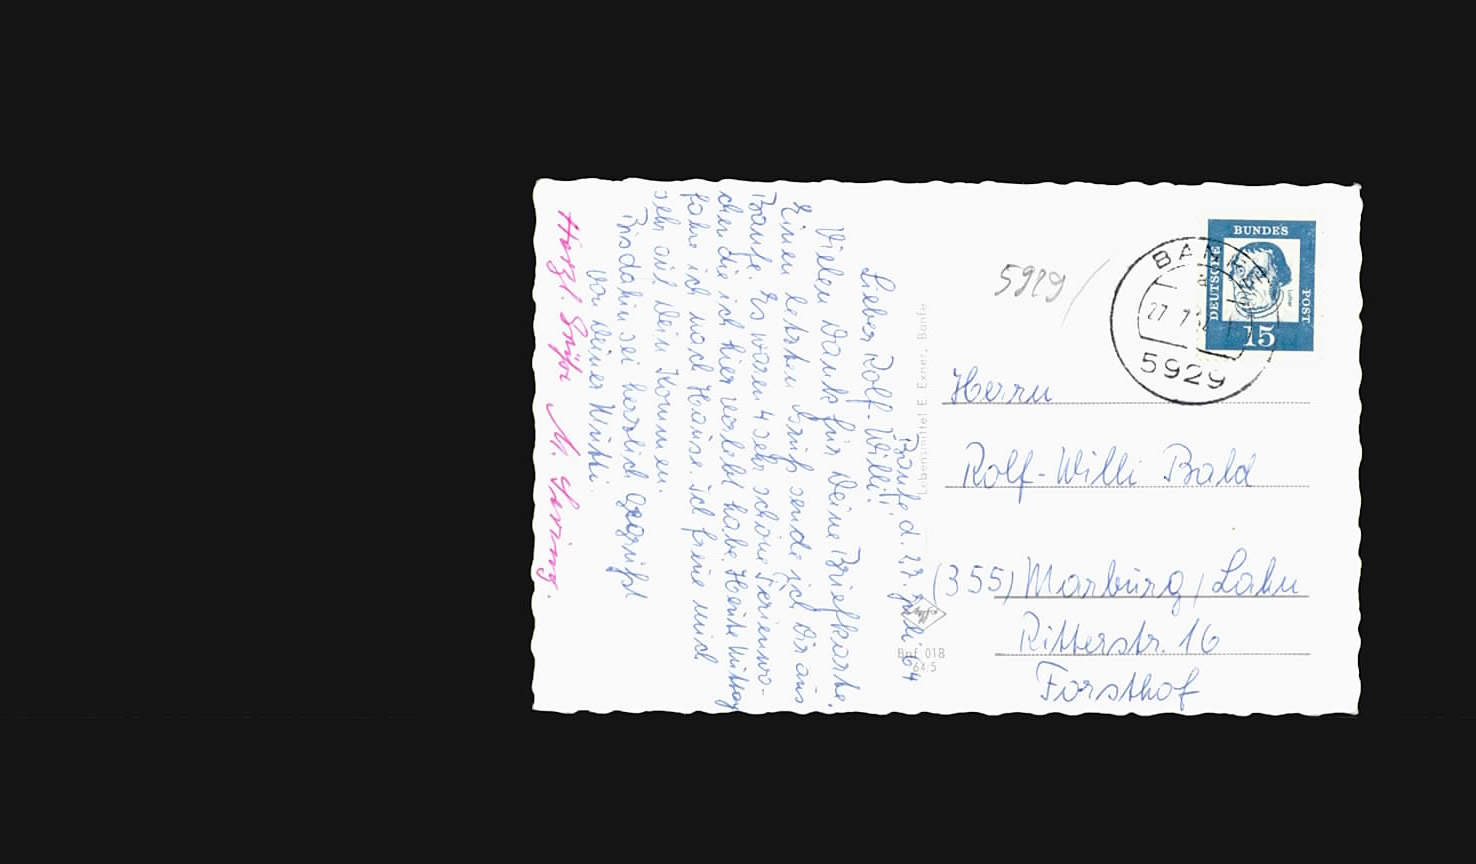 Banfe d. 27. Juli 64
Lieber Rolf-Willi!
Vielen Dank für Deine Briefkarte.
Einen letzten Gruß sende ich Dir aus
Banfe. Es waren 4 sehr schöne Ferienwo-
chen die ich hier verlebt habe. Heute Mittag
fahre ich nach Hause. Ich freue mich
sehr auf Dein Kommen.
Bis dahin sei herzlich gegrüßt
von Deiner
Herzl. Grüße M.
Lebensmittel E. Exner, Banfe
BnF 018
64 5
5929
BANFE
27 7
5929
DEUTSCHE
BUNDES
POST
Luther
15
Herrn
Rolf-Willi Bald
(355) Marburg / Lahn
Ritterstr. 16
Forsthof